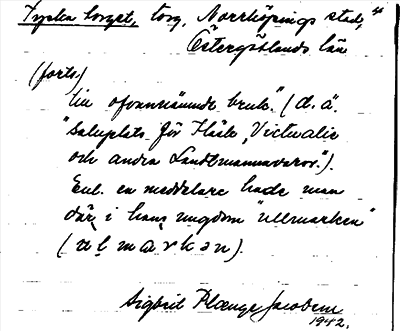 Tyska torget, torg, Norrköpings stad, 4
Östergötlands län
(forts.)
till ofvannämnde bruk". (d.ä.
"Saluplats för Hääs, Victualie
och andra Landtmannavaror.").
Enl. en meddelare hade man
där i hans ungdom "ullmarken"
(ulmarkən).
Sigbrit Plænge Jacobson
1942.